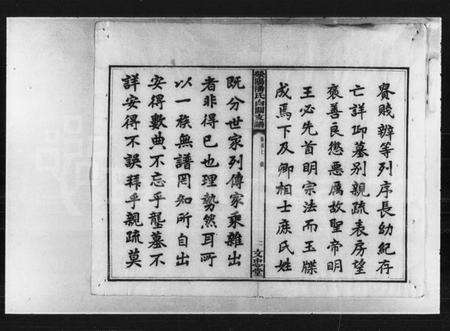 賚賤辦等列序長幼紀存
亡詳卭墓别親疏表房望
褒善良懲惡厲故聖帝明
王必先首明宗法而王牒
成焉下及卿相士庶氏姓
滎陽潘氏
文忠堂
既分世家列傳家乘雜出
者非得已也理勢然耳所
以一族無譜罔知所自出
安得數典不忘乎壟墓不
詳安得不誤拜乎親疏莫